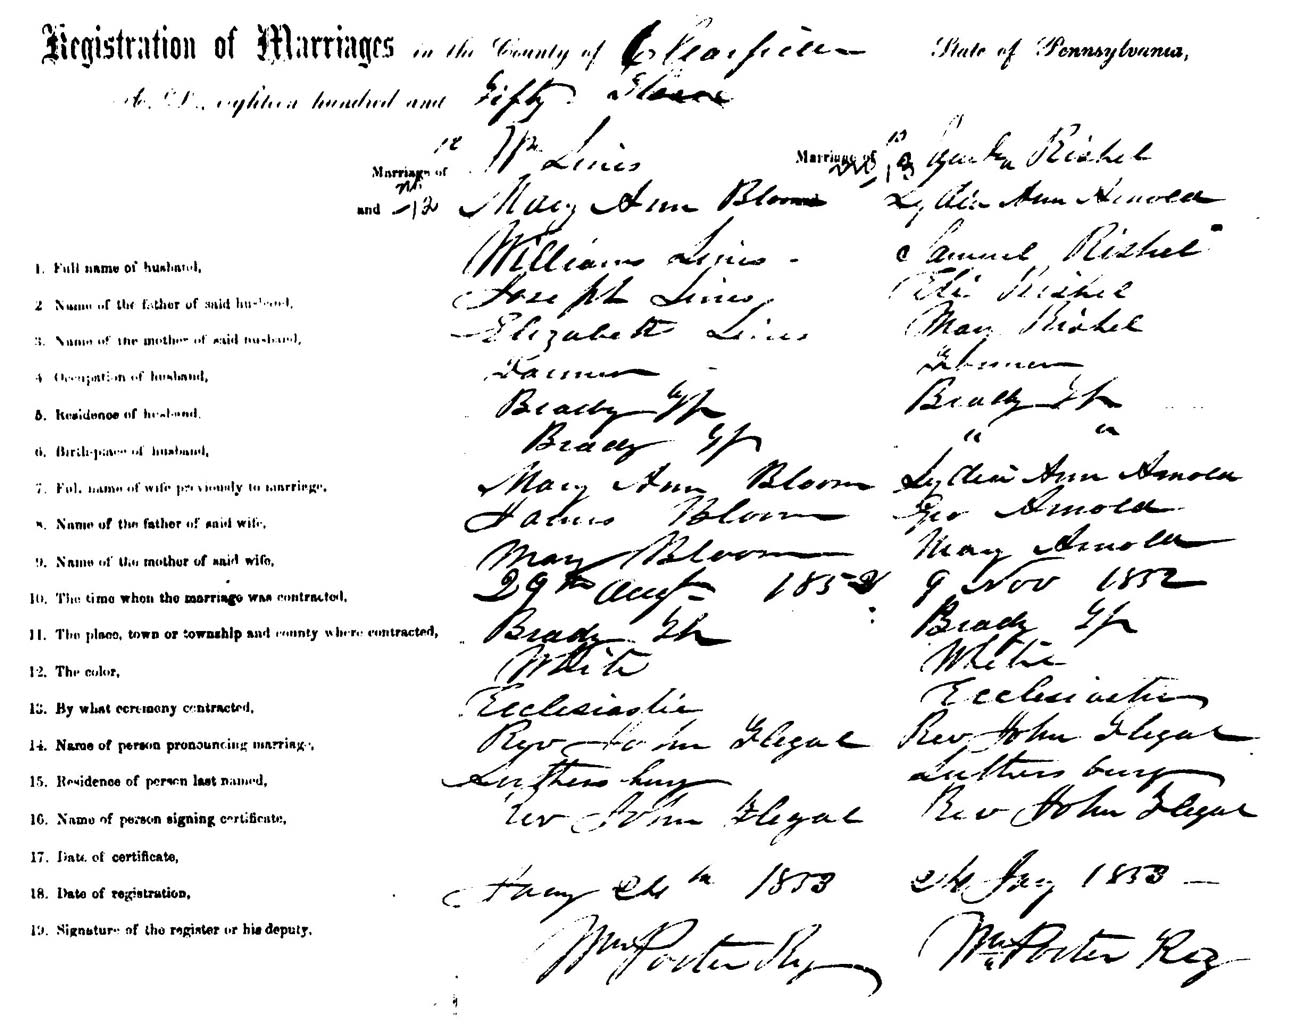 Registration of Marriages in the County of Clearfield State of Pennsylvania,
A. D., eighteen hundred and Fifty Three
12 Marriage of Wm Lines Marriage of 13 Rishel
and No 12 Mary Ann Bloom No 13 Lydia Ann Arnold
1. Full name of husband, Williams Lines Samuel Rishel
2 Name of the father of said husband, Joseph Lines Eli Rishel
3. Name of the mother of said husband, Elizabeth Lines May Rishel
4. Occupation of husband, Farmer Farmer
5. Residence of husband, Brady Tp Brady Tp
6. Birth-place of husband, Brady Tp " "
7. Full name of wife previously to marriage, Mary Ann Bloom Lydia Ann Arnold
8. Name of the father of said wife, James Bloom Geo Arnold
9. Name of the mother of said wife, May Bloom Mary Arnold
10. The time when the marriage was contracted, 29th Augt 1852 9 Nov 1852
11. The place, town or township and county where contracted, Brady Tp Brady Tp
12. The color, White White
13. By what ceremony contracted, Ecclesiastic Ecclesiastic
14. Name of person pronouncing marriage, Rev John Flegal Rev John Flegal
15. Residence of person last named, Luthersburg Luthersburg
16. Name of person signing certificate, Rev John Flegal Rev John Flegal
17. Date of certificate,
18. Date of registration, Jany 24th 1853 24 Jay 1853
19. Signature of the register or his deputy, Wm Porter Reg Wm Porter Reg